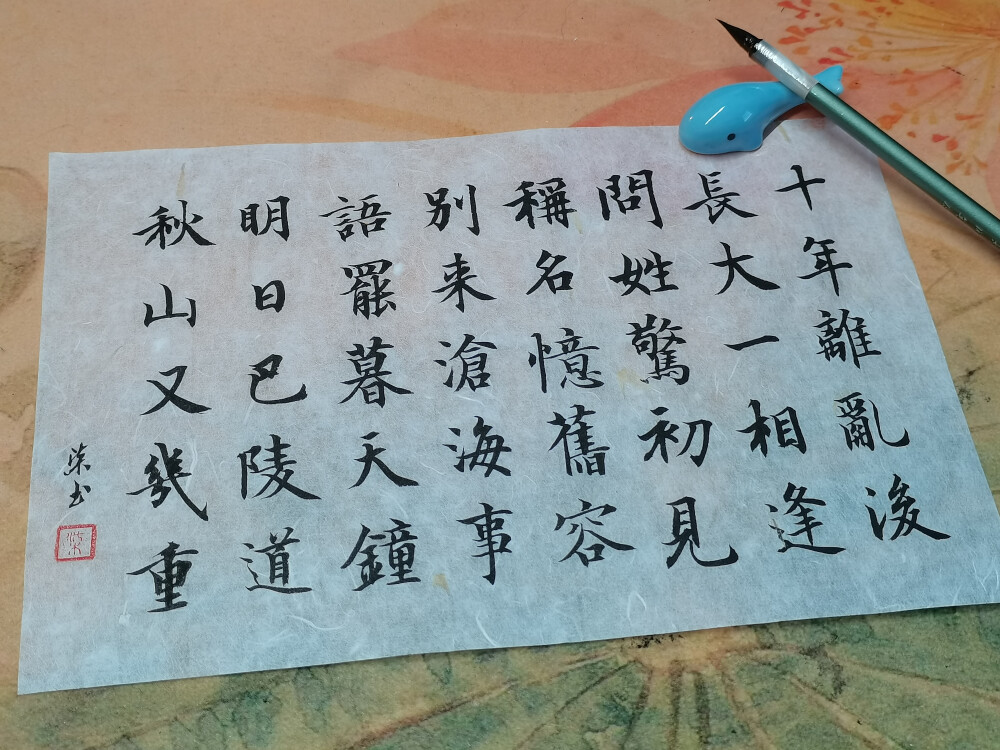 十年離亂後
長大一相逢
問姓驚初見
稱名憶舊容
別来滄海事
語罷暮天鐘
明日巴陵道
秋山又幾重